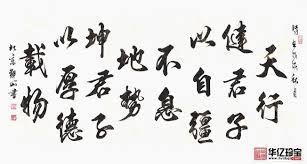 天行
健君子
以自疆
不息
地勢
坤君子
以厚德
載物
华亿珍宝